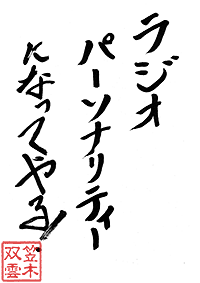 ラジオ
パーソナリティー
になってやる!
笠木
双雲